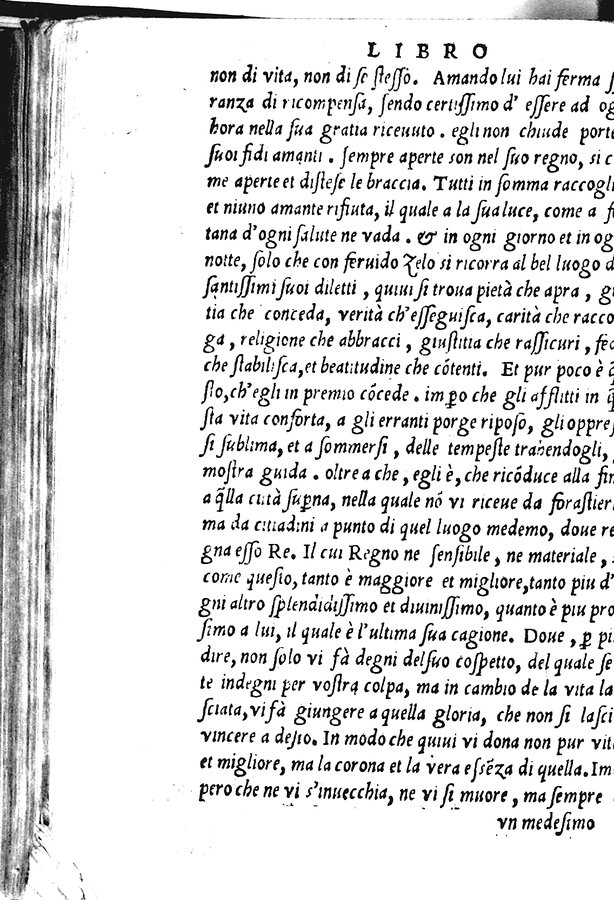 LIBRO
non di vita, non di ſe ſteſſo. Amando lui hai ferma
ranza di ricompenſa, ſendo certiſſimo d' eſſere ad
hora nella ſua gratia riceuuto. egli non chiude porte
ſuoi fidi amanti. ſempre aperte son nel ſuo regno, si
me aperte et diſteſe le braccia. Tutti in ſomma
et niuno amante rifiuta, il quale a la ſua luce, come a
tana d'ogni ſalute ne vada. & in ogni giorno et in
notte, ſolo che con feruido Zelo si ricorra al bel luogo
ſantiſſimi ſuoi diletti, quiui ſi troua pietà che apra,
tia che conceda, verità ch'eſſeguiſca, carità che
ga, religione che abbracci, giuſtitia che raſſicuri,
che ſtabiliſca, et beatitudine che cõtenti. Et pur poco è
ſto, ch'egli in premio cõcede. imꝑo che gli afflitti in
ſta vita conforta, a gli erranti porge ripoſo, gli
ſi ſublima, et a ſommerſi, delle tempeſte trahendogli,
moſtra guida. oltre a che, egli è, che ricõduce alla
a q̃lla città ſuꝑna, nella quale nõ vi riceue da
ma da cittadini a punto di quel luogo medemo, doue
gna eſſo Re. Il cui Regno ne ſenſibile, ne materiale,
come queſto, tanto è maggiore et migliore, tanto piu
gni altro ſplendidiſſimo et diuiniſſimo, quanto è piu
ſimo a lui, il quale è l'ultima ſua cagione. Doue, ꝑ
dire, non ſolo vi fà degni del ſuo coſpetto, del quale
te indegni per voſtra colpa, ma in cambio de la vita
ſciata, vi fà giungere a quella gloria, che non ſi
vincere a deſio. In modo che quiui vi dona non pur
et migliore, ma la corona et la vera eſsẽza di quella. Im
pero che ne vi s'inuecchia, ne vi ſi muore, ma ſempre
vn medeſimo